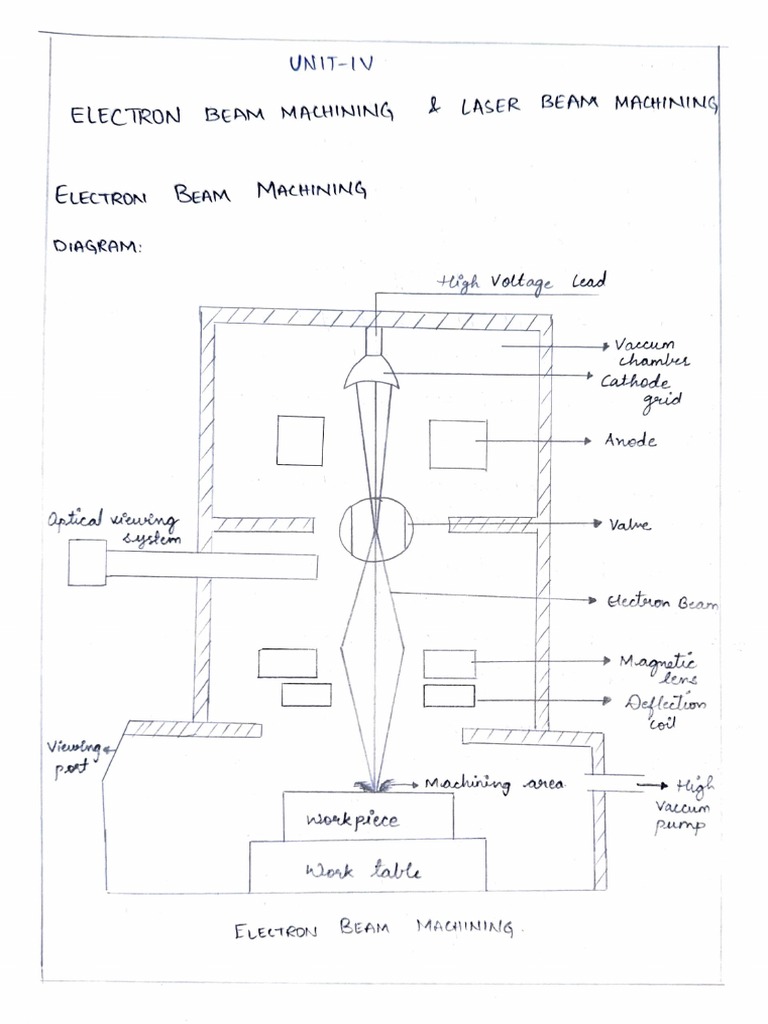 UNIT-IV
ELECTRON BEAM MACHINING & LASER BEAM MACHINING
ELECTRON BEAM MACHINING
DIAGRAM:
High Voltage Lead
Vaccum
chamber
Cathode
grid
Anode
Optical viewing
system
Valve
Electron Beam
Magnetic
lens
Deflection
coil
Viewing
port
Machining area
High
Vaccum
pump
Workpiece
Work table
ELECTRON BEAM MACHINING.